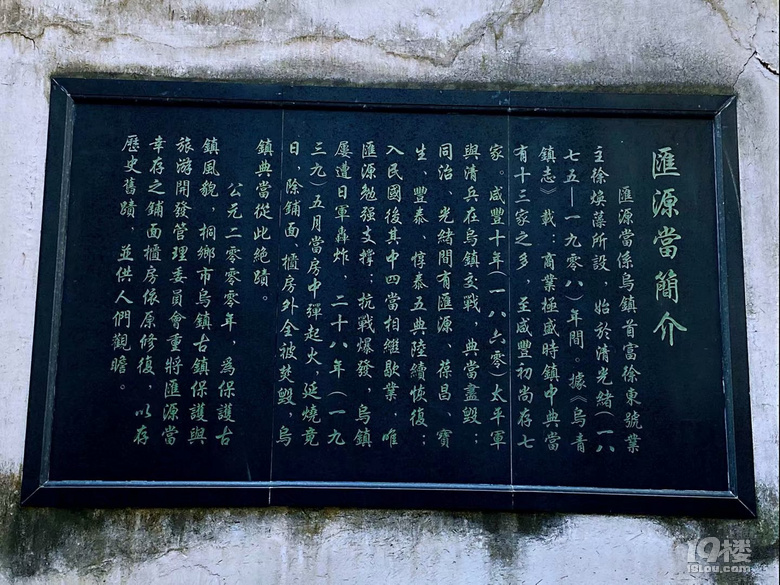 匯源當簡介
匯源當係烏鎮首富徐東號業
主徐煥藻所設，始於清光緒（一八
七五—一九零八）年間。據《烏青
鎮志》載：商業極盛時鎮中典當
有十三家之多，至咸豐初尚存七
家。咸豐十年（一八六零）太平軍
與清兵在烏鎮交戰，典當盡毀；
同治、光緒間有匯源、葆昌、寶
生、豐泰、惇泰五典陸續恢復；
入民國後其中四當相繼歇業，唯
匯源勉强支撑；抗戰爆發，烏鎮
屢遭日軍轟炸，二十八年（一九
三九）五月當房中彈起火，延燒竟
日，除鋪面、櫃房外全被焚毀，烏
鎮典當從此絶蹟。
公元二零零零年，為保護古
鎮風貌，桐鄉市烏鎮古鎮保護與
旅游開發管理委員會重將匯源當
幸存之鋪面櫃房依原修復，以存
歷史舊蹟，並供人們觀瞻。
19楼
19lou.com